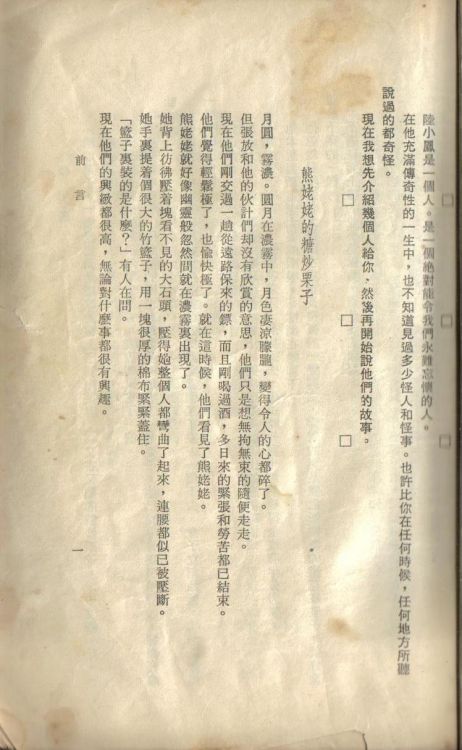 陸小鳳是一個人。是一個絕對能令我們永難忘懷的人。
在他充滿傳奇性的一生中，也不知道見過多少怪人和怪事。也許比你在任何時候，任何地方所聽
說過的都奇怪。
現在我想先介紹幾個人給你，然後再開始說他們的故事。
□ □ □
熊姥姥的糖炒栗子
月圓，霧濃。圓月在濃霧中，月色凄涼朦朧，變得令人的心都碎了。
但張放和他的伙計們却沒有欣賞的意思，他們只是想無拘無束的隨便走走。
現在他們剛交過一趟從遠路保來的鏢，而且剛喝過酒，多日來的緊張和勞苦都已結束。
他們覺得輕鬆極了，也愉快極了。就在這時候，他們看見了熊姥姥。
熊姥姥就好像幽靈般忽然間就在濃霧裏出現了。
她背上彷彿壓着塊看不見的大石頭，壓得她整個人都彎曲了起來，連腰都似已被壓斷。
她手裏提着個很大的竹籃子，用一塊很厚的棉布緊緊蓋住。
「籃子裏裝的是什麼？」有人在問。
現在他們的興緻都很高，無論對什麼事都很有興趣。
前言
一